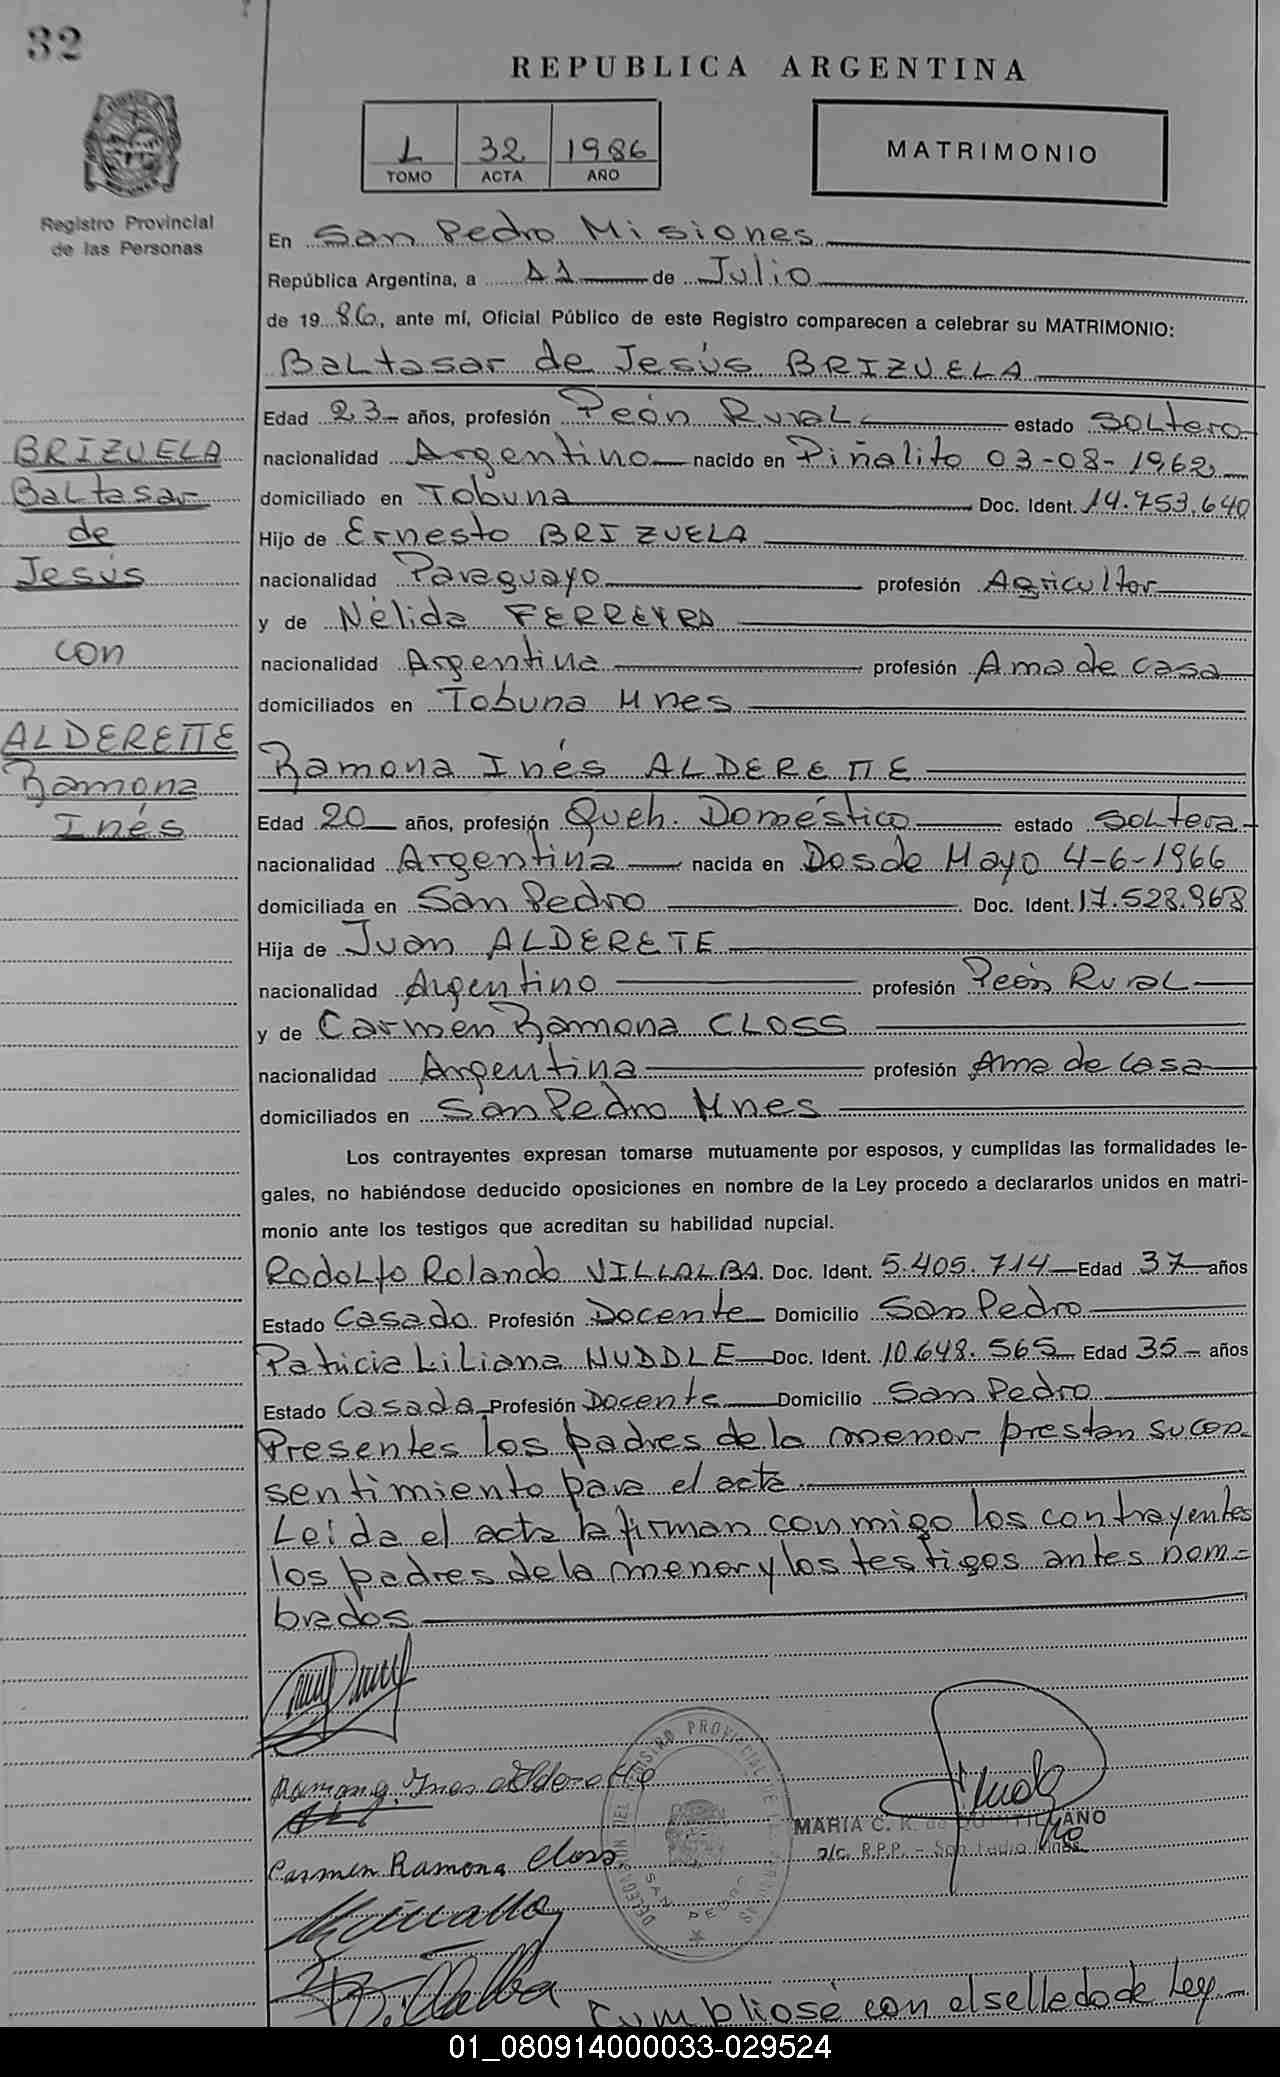 32
REPUBLICA ARGENTINA
1 32 1986
TOMO ACTA AÑO
MATRIMONIO
Registro Provincial
de las Personas
En San Pedro Misiones
República Argentina, a 11 de Julio
de 1986, ante mí, Oficial Público de este Registro comparecen a celebrar su MATRIMONIO:
Baltasar de Jesús BRIZUELA
Edad 23 años, profesión Peón Rural estado Soltero
nacionalidad Argentino nacido en Piñalito 03-08-1962
domiciliado en Tobuna Doc. Ident. 14.753.640
Hijo de Ernesto BRIZUELA
nacionalidad Paraguayo profesión Agricultor
y de Nélida FERREYRA
nacionalidad Argentina profesión Ama de casa
domiciliados en Tobuna Mnes
BRIZUELA
Baltasar
de
Jesús
con
ALDERETTE
Ramona
Inés
Ramona Inés ALDERETTE
Edad 20 años, profesión Queh. Doméstico estado Soltera
nacionalidad Argentina nacida en Dos de Mayo 4-6-1966
domiciliada en San Pedro Doc. Ident. 17.528.968
Hija de Juan ALDERETE
nacionalidad Argentino profesión Peón Rural
y de Carmen Ramona CLOSS
nacionalidad Argentina profesión Ama de casa
domiciliados en San Pedro Mnes
Los contrayentes expresan tomarse mutuamente por esposos, y cumplidas las formalidades le-
gales, no habiéndose deducido oposiciones en nombre de la Ley procedo a declararlos unidos en matri-
monio ante los testigos que acreditan su habilidad nupcial.
Rodolfo Rolando VILLALBA Doc. Ident. 5.405.714 Edad 37 años
Estado Casado Profesión Docente Domicilio San Pedro
Patricia Liliana HUDDLE Doc. Ident. 10.648.565 Edad 35 años
Estado Casada Profesión Docente Domicilio San Pedro
Presentes los padres de la menor prestan su con-
sentimiento para el acta
Leída el acta la firman conmigo los contrayentes
los padres de la menor y los testigos antes nom=
brados
Ramona Ines Alderette
DELEGACION DEL REGISTRO PROVINCIAL DE LAS PERSONAS
SAN PEDRO
MARIA C. R. de
a/c. R.P.P. - San Pedro Mnes.
Carmen Ramona Closs
Cumplióse con el sellado de Ley
01_080914000033-029524